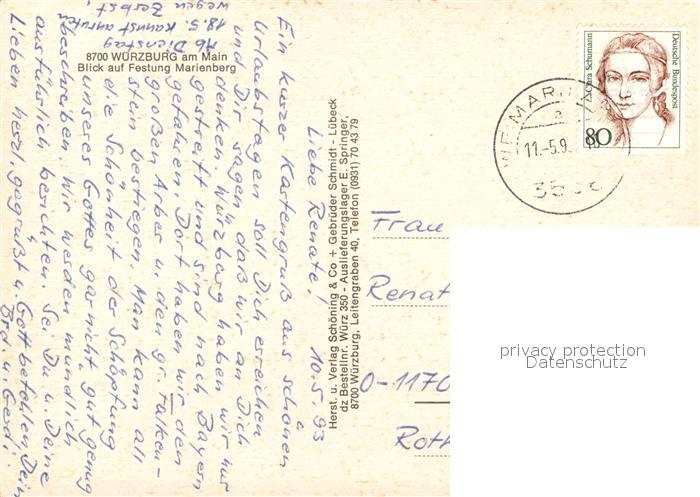 8700 WÜRZBURG am Main
Blick auf Festung Marienberg
Liebe Renate! 10.5.93
Ein kurzer Kartengruß aus schönen
Urlaubstagen soll Dich erreichen
und Dir sagen, daß wir an Dich
denken. Würzburg haben wir nur
gestreift und sind nach Bayern
gefahren. Dort haben wir den
großen Arber u. den gr. Falken-
stein bestiegen. Man kann all
die Schönheit der Schöpfung
unseres Gottes gar nicht gut genug
beschreiben. Wir werden mündlich
ausführlich berichten. Sei Du u. Deine
Lieben herzl. gegrüßt u. Gott befohlen Dein
u. Gerdi
Ab Dienstag
18.5. kannst anrufen
wegen Zerbst
Herst. u. Verlag Schöning & Co + Gebrüder Schmidt - Lübeck
dz Bestellnr. Würz 350 - Auslieferungslager E. Springer,
8700 Würzburg, Leitengraben 40, Telefon (0931) 70 43 79
Clara Schumann
Deutsche Bundespost
80
WEIMAR
a
11.-5.9
Frau
Renat
O-1170
Roth
privacy protection
Datenschutz